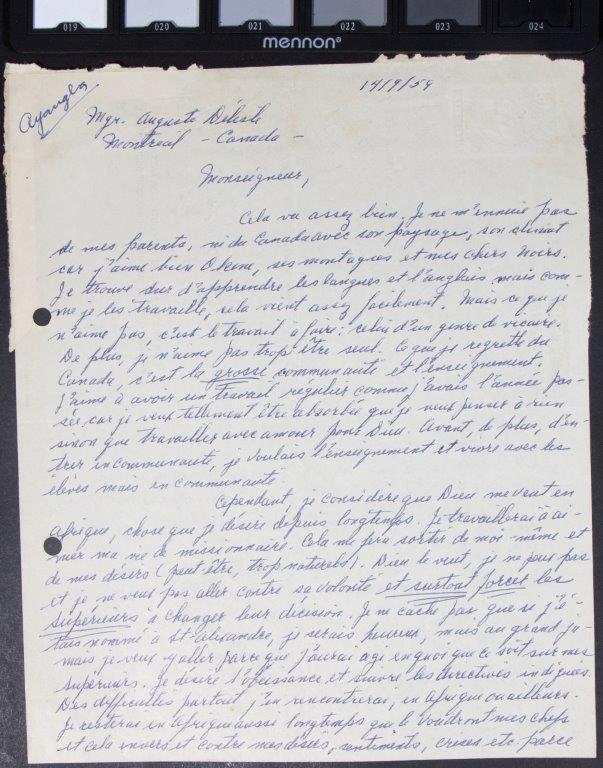 019 020 021 022 023 024
mennon®
14/9/59
Ayangba
Mgr. Auguste Délisle
Montréal - Canada -
Monseigneur,
Cela va assez bien. Je ne m'ennuie pas
de mes parents, ni du Canada avec son paysage, son climat
car j'aime bien Okene, ses montagnes et mes chers noirs.
Je trouve dur d'apprendre les langues et l'anglais mais com-
me je les travaille, cela vient assez facilement. Mais ce que je
n'aime pas, c'est le travail à faire: celui d'un genre de vicaire.
De plus, je n'aime pas trop être seul. Ce que je regrette du
Canada, c'est la grosse communauté et l'enseignement.
J'aime à avoir un travail régulier comme j'avais l'année pas-
sée car je veux tellement être absorbé que je veux penser à rien
sinon que travailler avec amour pour Dieu. Avant, de plus, d'en-
trer en communauté, je voulais l'enseignement et vivre avec les
élèves mais en communauté.
Cependant, je considère que Dieu me veut en
Afrique, chose que je désire depuis longtemps. Je travaillerai à ai-
mer ma vie de missionnaire. Cela me fera sortir de moi-même et
de mes désirs (peut être, trop naturels). Dieu le veut, je ne peux pas
et je ne veux pas aller contre sa volonté et surtout forcer les
supérieurs à changer leur décision. Je ne cache pas que si j'é-
tais nommé à St-Alexandre, je serais heureux, mais au grand ja-
mais je veux y aller parce que j'aurai agi en quoi que ce soit sur mes
supérieurs. Je désire l'obéissance et suivre les directives indiquées.
Des difficultés partout j'en rencontrerai, en Afrique ou ailleurs.
Je resterai en Afrique aussi longtemps que le voudront mes chefs
et cela envers et contre mes désirs, sentiments, crises etc. parce